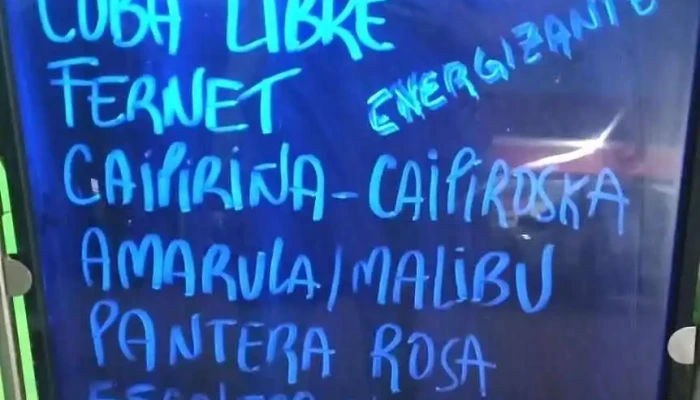 CUBA LIBRE
FERNET
ENERGIZANTE
CAIPIRIÑA - CAIPIROSKA
AMARULA / MALIBU
PANTERA ROSA